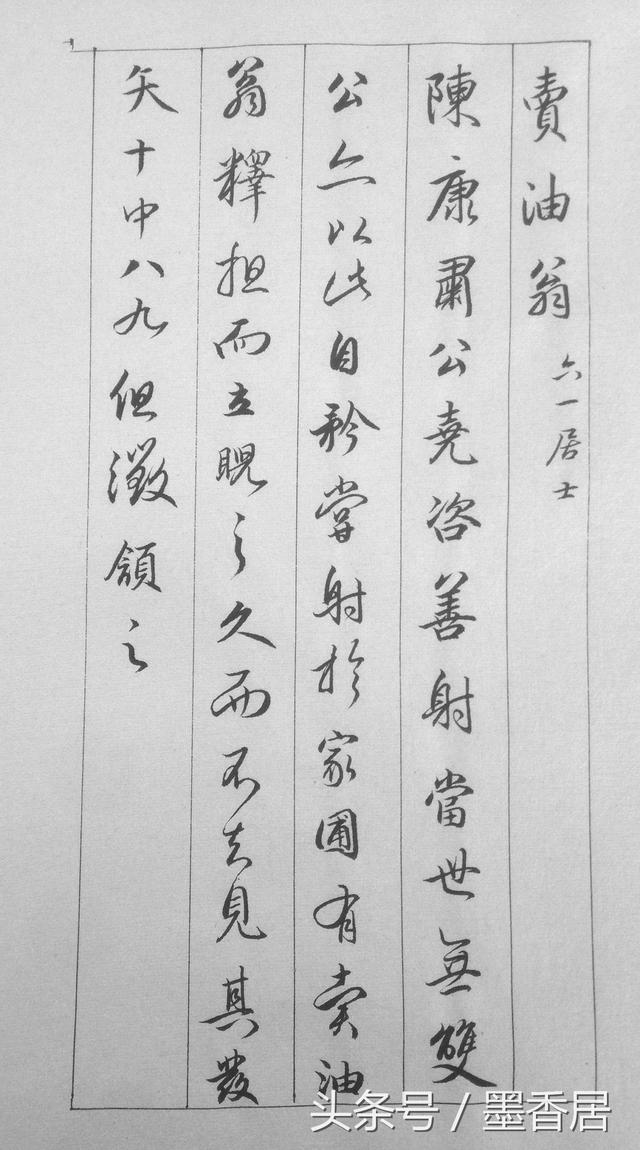 賣油翁 六一居士
陳康肅公堯咨善射當世無雙
公亦以此自矜嘗射於家圃有賣油
翁釋担而立睨之久而不去見其發
矢十中八九但微頷之
头条号 / 墨香居